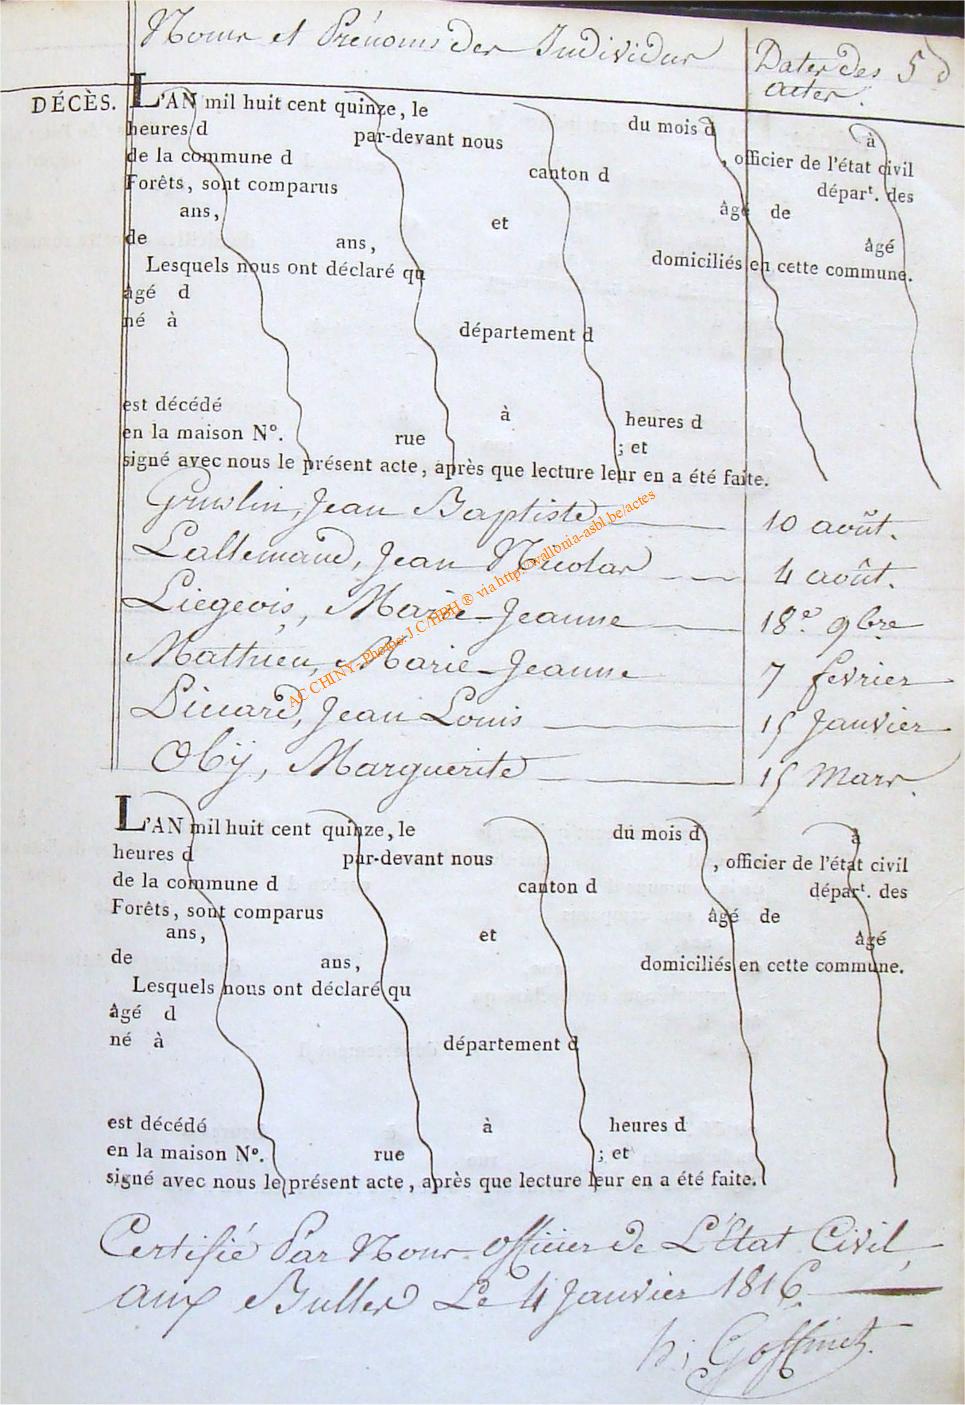 Noms et Prénoms des Individus
Dates des actes.
5
DÉCÈS.
L'AN mil huit cent quinze, le du mois d à
heures d par-devant nous , officier de l'état civil
de la commune d canton d départ. des
Forêts, sont comparus âgé de
ans, et âgé
de ans, domiciliés en cette commune.
Lesquels nous ont déclaré qu
âgé d
né à département d
est décédé à heures d
en la maison N°. rue ; et
signé avec nous le présent acte, après que lecture leur en a été faite.
Jean Baptiste 10 août.
Lallemand, Jean Nicolas 4 août.
Liégeois, Marie-Jeanne 18 9bre
Mathieu, Marie-Jeanne 7 février
Jean Louis 15 Janvier
Obÿ, Marguerite 15 Mars.
AC CHINY - Photos J.C/HBH ® via http://wallonia-asbl.be/actes
L'AN mil huit cent quinze, le du mois d à
heures d par-devant nous , officier de l'état civil
de la commune d canton d départ. des
Forêts, sont comparus âgé de
ans, et âgé
de ans, domiciliés en cette commune.
Lesquels nous ont déclaré qu
âgé d
né à département d
est décédé à heures d
en la maison N°. rue ; et
signé avec nous le présent acte, après que lecture leur en a été faite.
Certifié Par Nous officier de L'État Civil
aux Bulles Le 4 Janvier 1816
h; Goffinet.